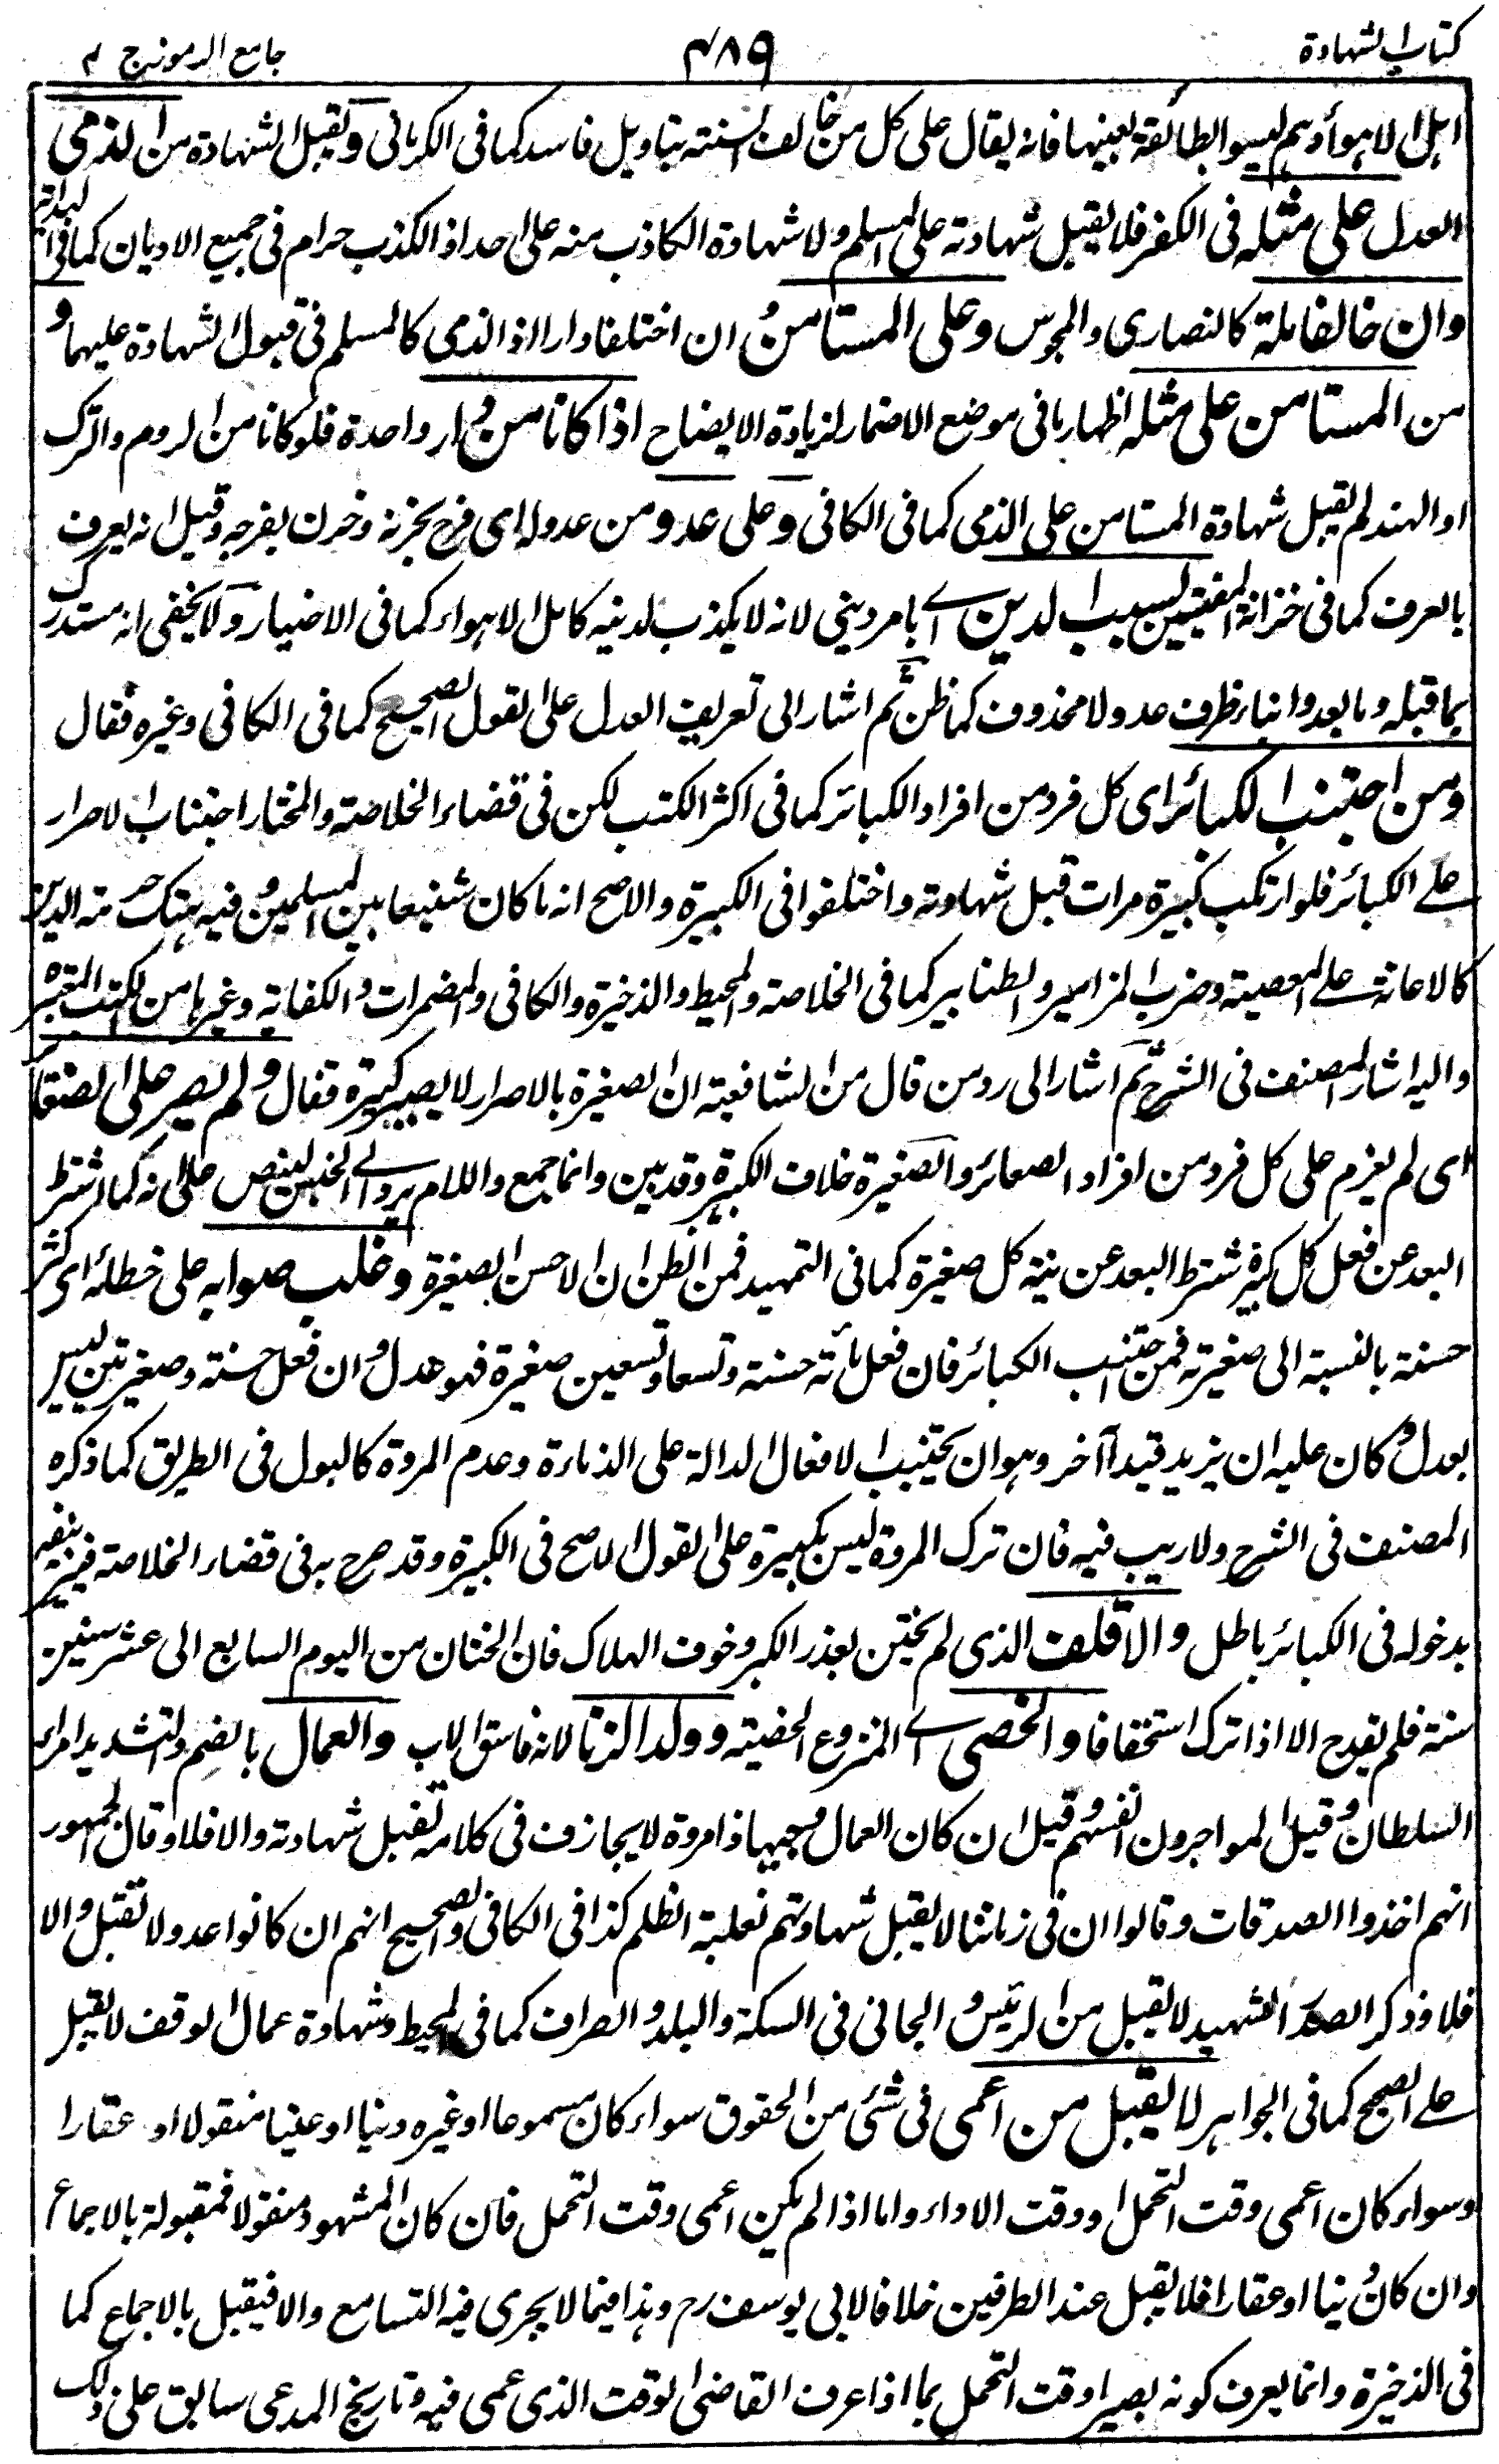 كتاب الشهادة
٤٨٩
جامع الرموز ج ٢
اهل الاهواء وهم ليسوا بطائفة بعينها فانه يقال على كل من خالف السنة بتاويل فاسد كما فى الكرمانى وتقبل الشهادة من الذمى
العدل على مثله فى الكفر فلا يقبل شهادته على المسلم ولا شهادة الكاذب منه على احد اذ الكذب حرام فى جميع الاديان كما فى
وان خالفا ملة كالنصارى والمجوس وعلى المستامن ان اختلفا دارا اذ الذمى كالمسلم فى قبول الشهادة عليهما و
من المستامن على مثله اظهار بافى موضع الاضمار لزيادة الايضاح اذا كانا من دار واحدة فلو كانا من الروم والترك
او الهند لم يقبل شهادة المستامن على الذمى كما فى الكافى وعلى عدو من عدوله اى فرح بحزنه وحزن بفرحه وقيل انه يعرف
بالعرف كما فى خزانة المفتيين بسبب الدين اى بامر دينى لانه لا يكذب لدينه كاهل الاهواء كما فى الاختيار ولا يخفى انه مستدرك
بما قبله وما بعد وانباء ظرف عدو لا محذوف كما ظن ثم اشار الى تعريف العدل على القول الصحيح كما فى الكافى وغيره فقال
ومن اجتنب الكبائر اى كل فرد من افراد الكبائر كما فى اكثر الكتب لكن فى قضاء الخلاصة والمختار اجتناب الاصرار
على الكبائر فلو ارتكب كبيرة مرات قبل شهادته واختلفوا فى الكبيرة والاصح انه ما كان شنيعا بين المسلمين وفيه هتك حرمة الدين
كالاعانة على المعصية وضرب المزامير والطنابير كما فى الخلاصة والمحيط والذخيرة والكافى والمضمرات والكفاية وغيرها من الكتب المعتبرة
واليه اشار المصنف فى الشرح ثم اشار الى رد من قال من الشافعية ان الصغيرة بالاصرار لا يصير كبيرة فقال ولم يصر على الصغائر
اى لم يعزم على كل فرد من افراد الصغائر والصغيرة خلاف الكبيرة وقد بين وانما جمع واللام يرد الى الجنس لينص على انه كما اشترط
البعد عن فعل كل كبيرة شرط البعد عن نية كل صغيرة كما فى التمهيد فمن الظن ان الاحسن الصغيرة وغلب صوابه على خطائه اى كثر
حسنة بالنسبة الى صغيرته فمن اجتنب الكبائر فان فعل مائة حسنة وتسعا وتسعين صغيرة فهو عدل وان فعل حسنة وصغيرتين ليس
بعدل وكان عليه ان يزيد قيدا آخر وهو ان يجتنب الافعال الدالة على الدناءة وعدم المروة كالبول فى الطريق كما ذكره
المصنف فى الشرح ولا ريب فيه فان ترك المروة ليس بكبيرة على القول الاصح فى الكبيرة وقد صرح به فى قضاء الخلاصة
بدخوله فى الكبائر باطل والاقلف الذى لم يختن بعذر الكبر وخوف الهلاك فان الختان من اليوم السابع الى عشر سنين
سنة فلم يقدح الا اذا ترك استخفافا والخصى اى المنزوع الخصية وولد الزنا لانه فاسق الاب والعمال بالضم والتشديد امراء
السلطان وقيل المواجرون انفسهم وقيل ان كان العمال وجيها ذا مروة لا يجازف فى كلامه تقبل شهادته والا فلا وقال الجمهور
انهم اخذوا الصدقات وقالوا ان فى زماننا لا يقبل شهادتهم لغلبة الظلم كذا فى الكافى والصحيح انهم ان كانوا عدولا تقبل والا
فلا وذكر الصدر الشهيد لا يقبل من الرئيس والجابى فى السكة والبلد والصراف كما فى المحيط وشهادة عمال الوقف لا يقبل
على الصحيح كما فى الجواهر لا يقبل من اعمى فى شئ من الحقوق سواء كان مسموعا او غيره دينا او عينا منقولا او عقارا
وسواء كان اعمى وقت التحمل او وقت الاداء واما اذا لم يكن اعمى وقت التحمل فان كان المشهود منقولا فمقبولة بالاجماع
وان كان دينا او عقارا فلا يقبل عند الطرفين خلافا لابى يوسف رح وهذا فيما لا يجرى فيه التسامع والا فيقبل بالاجماع كما
فى الذخيرة وانما يعرف كونه بصيرا وقت التحمل بما اذا عرف القاضى الوقت الذى عمى فيه وتاريخ المدعى سابق على ذلك